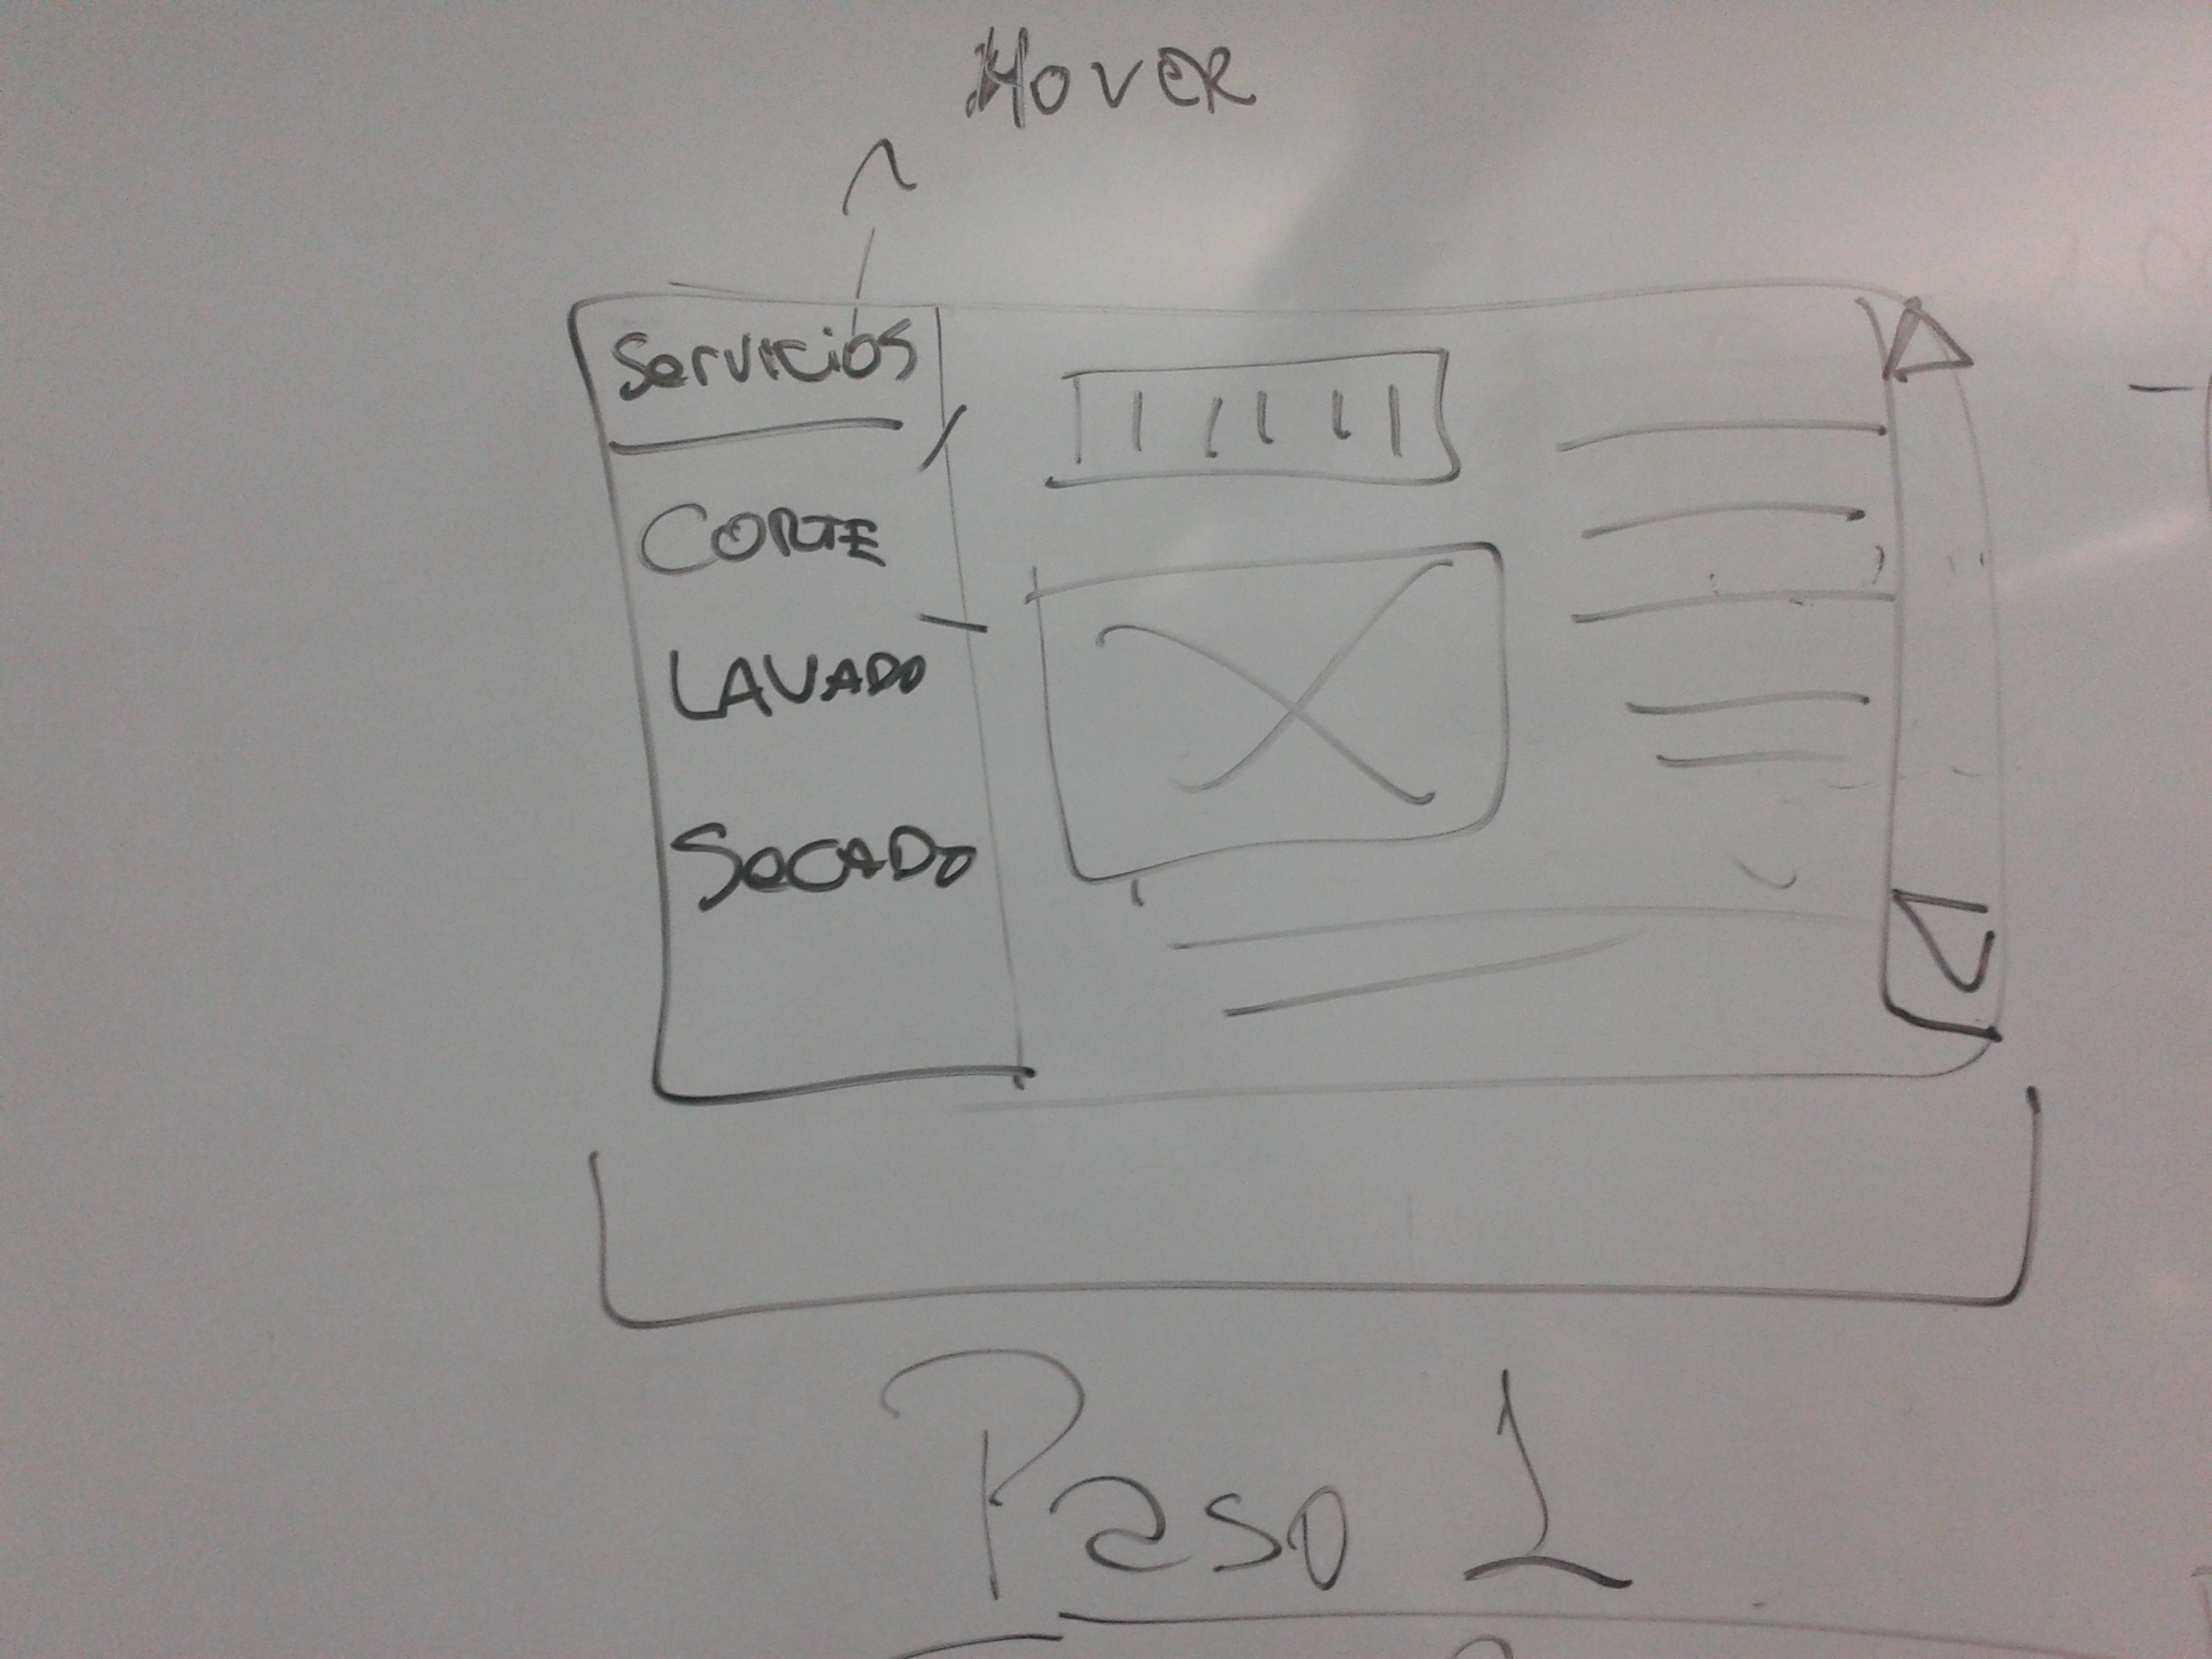 Hover
Servicios
CORTE
LAVADO
SeCADO
Paso 1